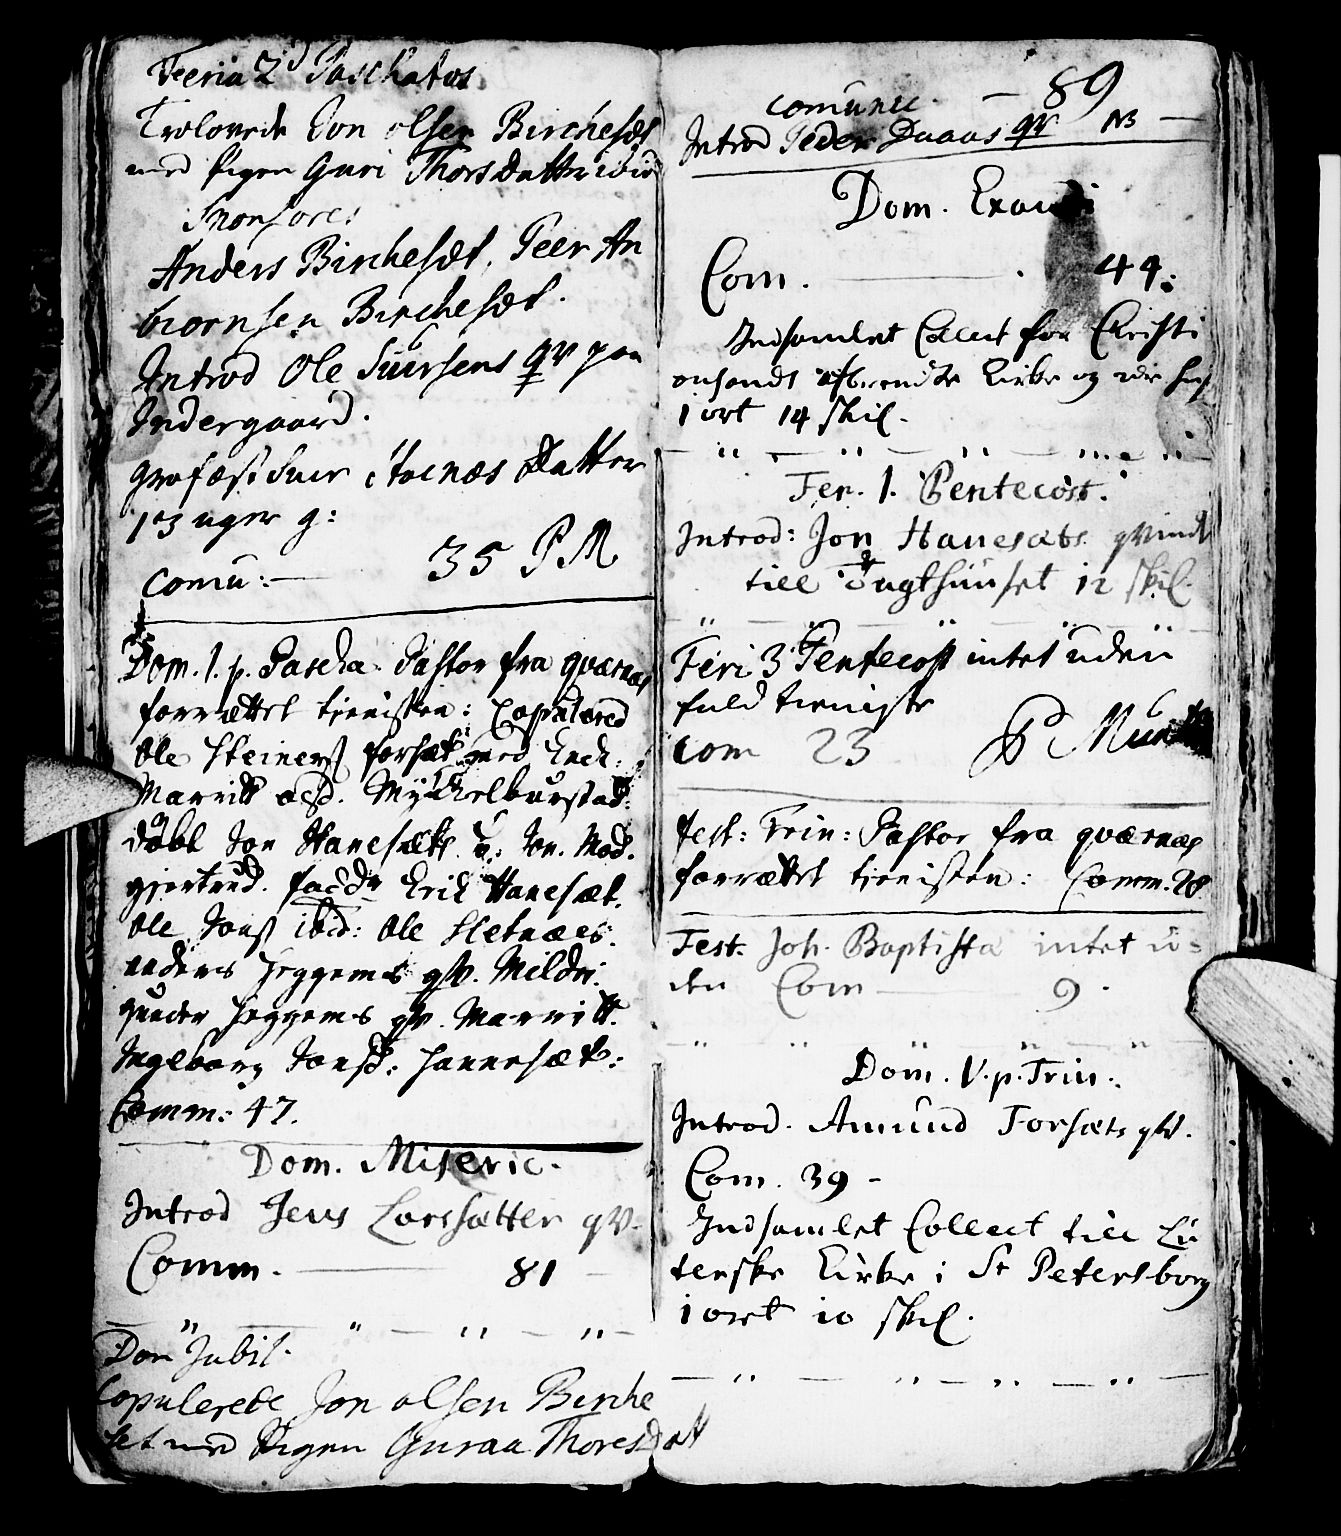 Feeria 2d Paschatos
Trolovede Jon olsen Birchesæt
med Pigen Guri Thorsdatter ibid
Sponsores
Anders Birchesæt, Peer An
biørnsen Birchesæt.
Introd Ole Siursens qv paa
Indergaard.
Grafæst Siur Steenes datter
13 uger g:
comu: — 35 P M
Dom. 1. p. Pascha. Pastor fra qværnæs
forrættet tienisten: Copulered
Ole Steners forsæt med Enck:
Marritt Myckelburstad.
døbt Jon Hanesæts b: Jon. Mod.
giertrud. fadr Erich Hanesæt.
Ole Jons ibid: Ole Sletnæs.
anders Heggems qv. Mildri.
gunder Heggems qv. Marritt.
Ingeborg Jonsd: Hannesæt:
Comm: 47.
Dom. Miseric.
Introd Jens Lorssætter qv.
Comm. — 81
Dom Jubil.
Copulerede Jon olsen Birche
set med Pigen Guraa Thoresdatt
comunic. — 89
Introd Peder Duaas qv NB —
Dom. Exaudi
Com. — 44:
Indsamlet Collect for Christi
ansands afbrendte Kirke og
1 ort 14 skil.
Fer. 1. Pentecost.
Introd: Jon Hanesæts qvind
till Tugthuuset 12 skil.
Feri 3 Pentecost intet uden
fuld tieniste
com 23 P Munch
fest: Trin: Pastor fra qværnæs
forrættet tienisten: Comm. 28.
Fest. Joh. Baptista intet u-
den Com — 9.
Dom. V. p. Trin:
Introd. Amund Forsæts qv.
Com. 39 -
Indsamlet Collect till Lu
terske Kirke i St Petersborg
1 ort 10 skil.